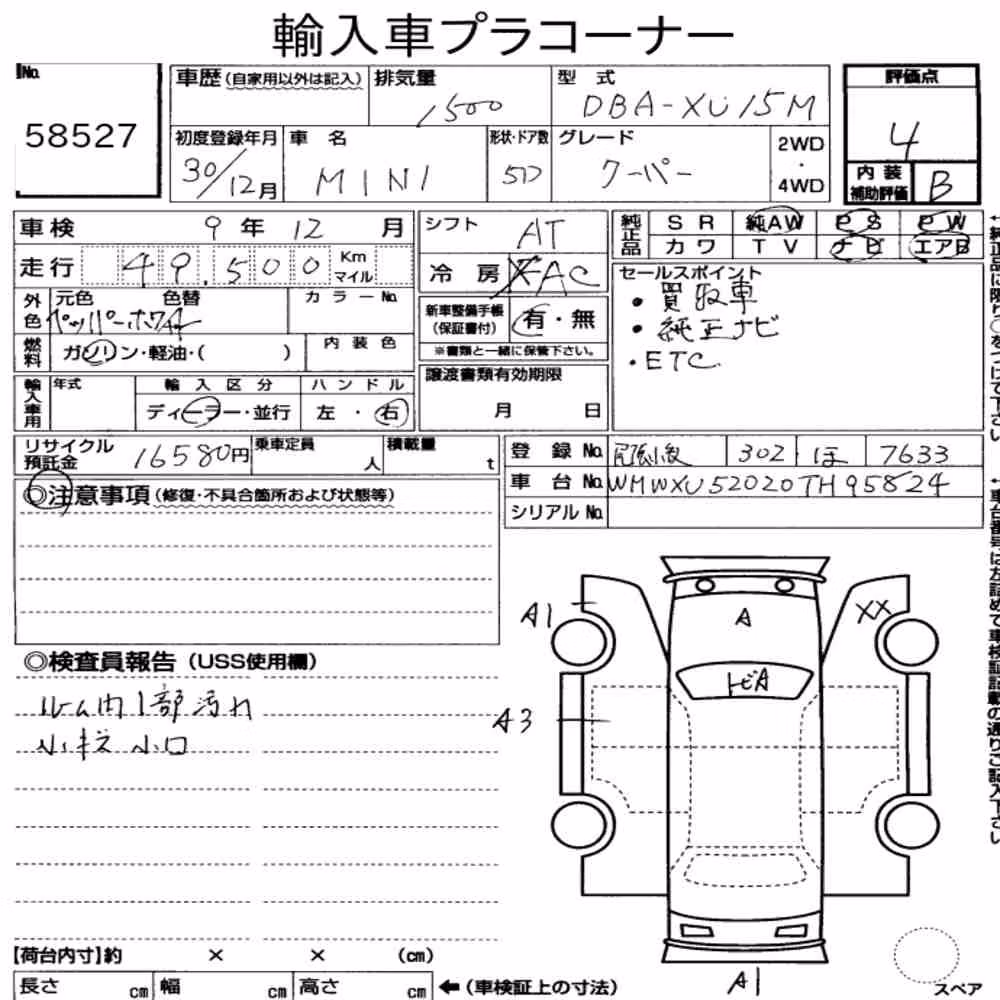 輸入車プラコーナー
No. 58527
車歴(自家用以外は記入) 排気量 1500 型式 DBA-XU15M
初度登録年月 30/12月 車名 MINI 形状・ドア数 5D グレード クーパー 2WD・4WD
評価点 4
内装補助評価 B
車検 9年12月 シフト AT
走行 49,500 Km マイル 冷房 AC
外色 元色 ペッパーホワイト 色替 カラーNo.
燃料 ガソリン・軽油・( ) 内装色
新車整備手帳(保証書付) 有・無
※書類と一緒に保管下さい。
輸入車用 年式 輸入区分 ディーラー・並行 ハンドル 左・右
譲渡書類有効期限 月 日
純正品 SR 純AW PS PW
カワ TV ナビ エアB
セールスポイント
・買取車
・純正ナビ
・ETC
リサイクル預託金 16580円 乗車定員 人 積載量 t
登録No. 尾張小牧 302 ほ 7633
車台No. WMWXU52020TH95824
シリアルNo.
◎注意事項(修復・不具合箇所および状態等)
◎検査員報告(USS使用欄)
ルーム内1部汚れ
小キズ 小凹
A1
A
XX
トビA
A3
A1
スペア
【荷台内寸】約 × × (cm)
長さ cm 幅 cm 高さ cm ←(車検証上の寸法)
←純正品に限り○をつけて下さい
←車台番号は左詰めで車検証記載の通りご記入下さい